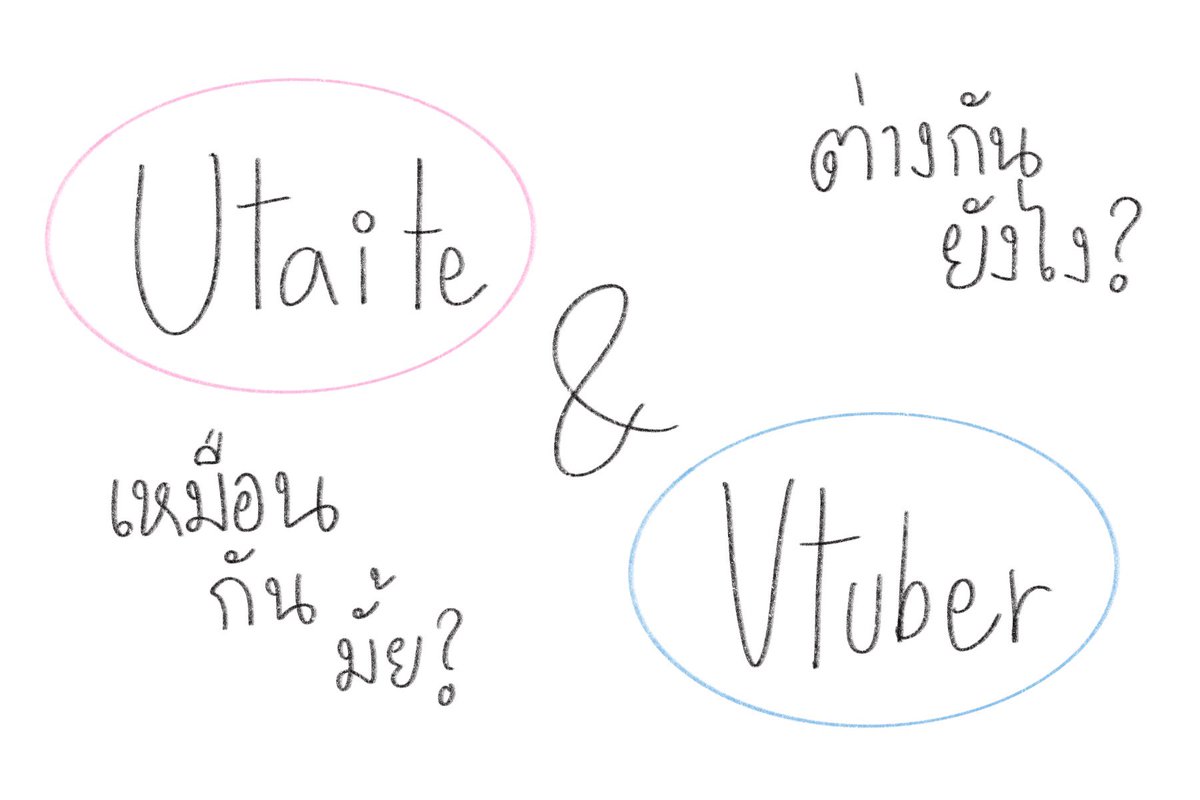 Utaite
ต่างกัน
ยังไง?
&
เหมือน
กัน
มั้ย?
Vtuber